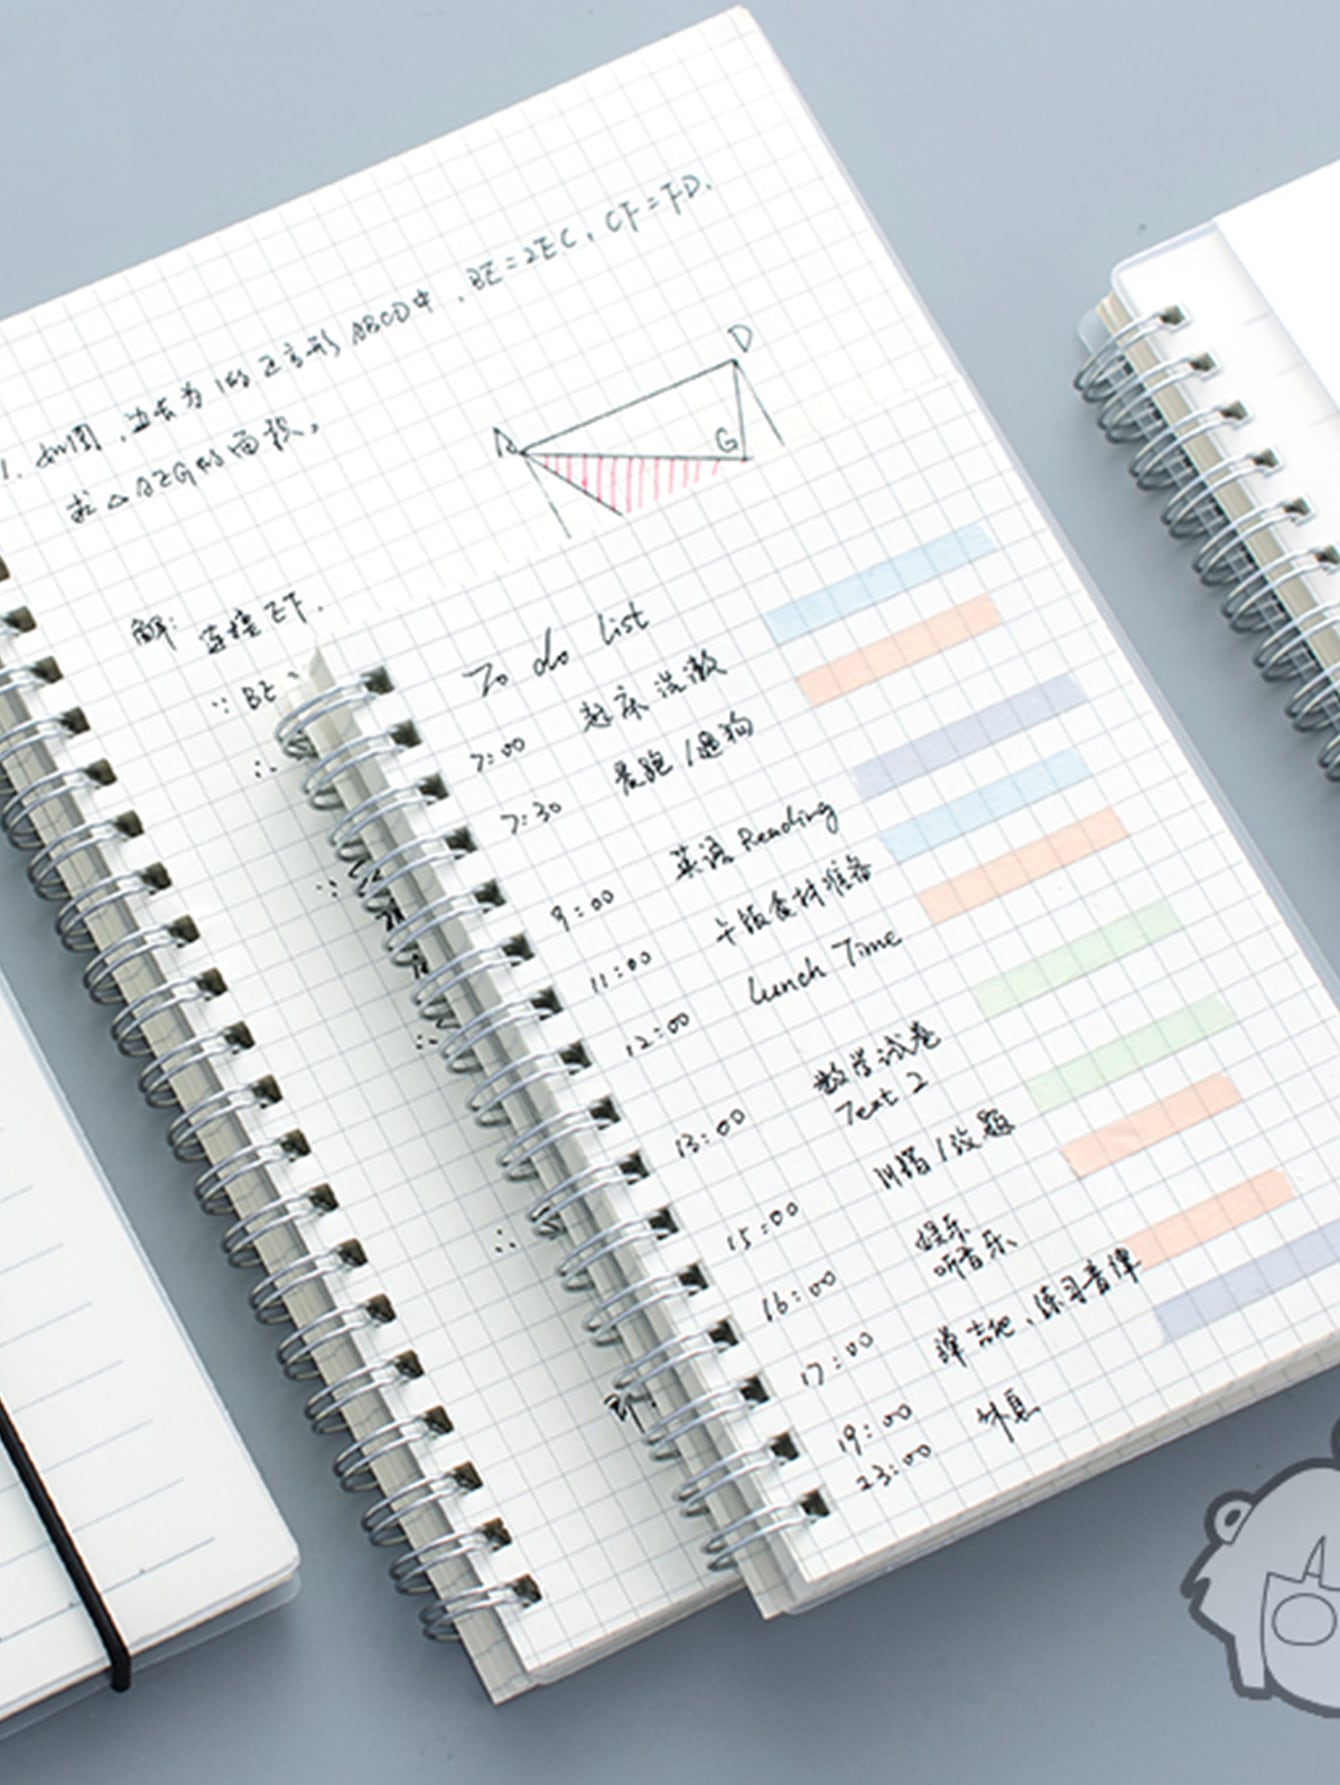 1. 如图,边长为1的正方形ABCD中,BE=2EC,CF=FD.
求△AEG的面积。
A
D
G
解:
连接EF.
∵ BE
∴
∵
∵
∴
即:
To do list
7:00 起床洗漱
7:30 晨跑/遛狗
9:00 英语Reading
11:00 午饭食材准备
12:00 Lunch Time
13:00 数学试卷
Text 2
15:00 /改题
16:00 娱乐
听音乐
17:00 弹吉他、练习音律
19:00 休息
23:00